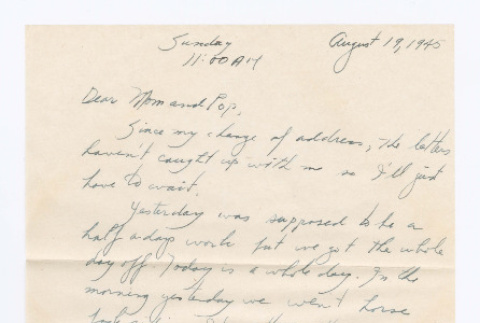 Sunday August 19, 1945
11:00 AM
Dear Mom and Pop,
Since my change of address, the letters
haven't caught up with me so I'll just
have to wait.
Yesterday was supposed to be a
half a days work but we got the whole
day off. Today is a whole day. In the
morning yesterday we went horse
back